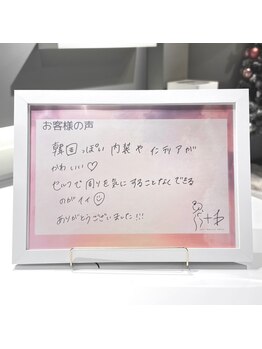 お客様の声
韓国っぽい内装やインテリアが
かわいい♡
セルフで周りを気にすることなくできる
のがイイ☺
ありがとうございました!!!